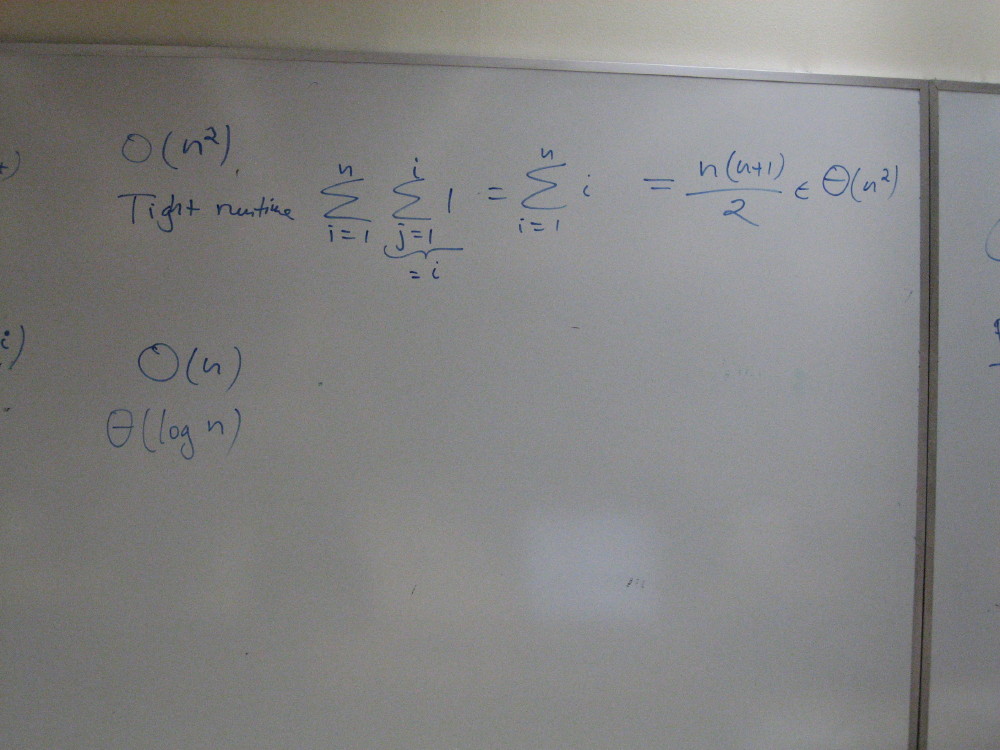 O(n²)
Tight runtime ∑_{i=1}^{n} ∑_{j=1}^{i} 1 = ∑_{i=1}^{n} i = n(n+1)/2 ∈ Θ(n²)
= i
i)
O(n)
Θ(log n)